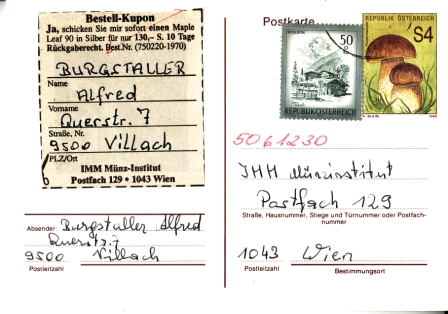 Bestell-Kupon
Ja, schicken Sie mir sofort einen Maple
Leaf 90 in Silber für nur 130,– S. 10 Tage
Rückgaberecht. Best.Nr. (750220-1970)
BURGSTALLER
Name
Alfred
Vorname
Querstr. 7
Straße, Nr.
9500 Villach
PLZ/Ort
IMM Münz-Institut
Postfach 129 • 1043 Wien
Absender: Burgstaller Alfred
Querstr. 7
9500 Villach
Postleitzahl
Postkarte
50 g
REPUBLIK ÖSTERREICH
REPUBLIK ÖSTERREICH
S4
5061230
IMM Münzinstitut
Postfach 129
Straße, Hausnummer, Stiege und Türnummer oder Postfach-
nummer
1043 Wien
Postleitzahl Bestimmungsort